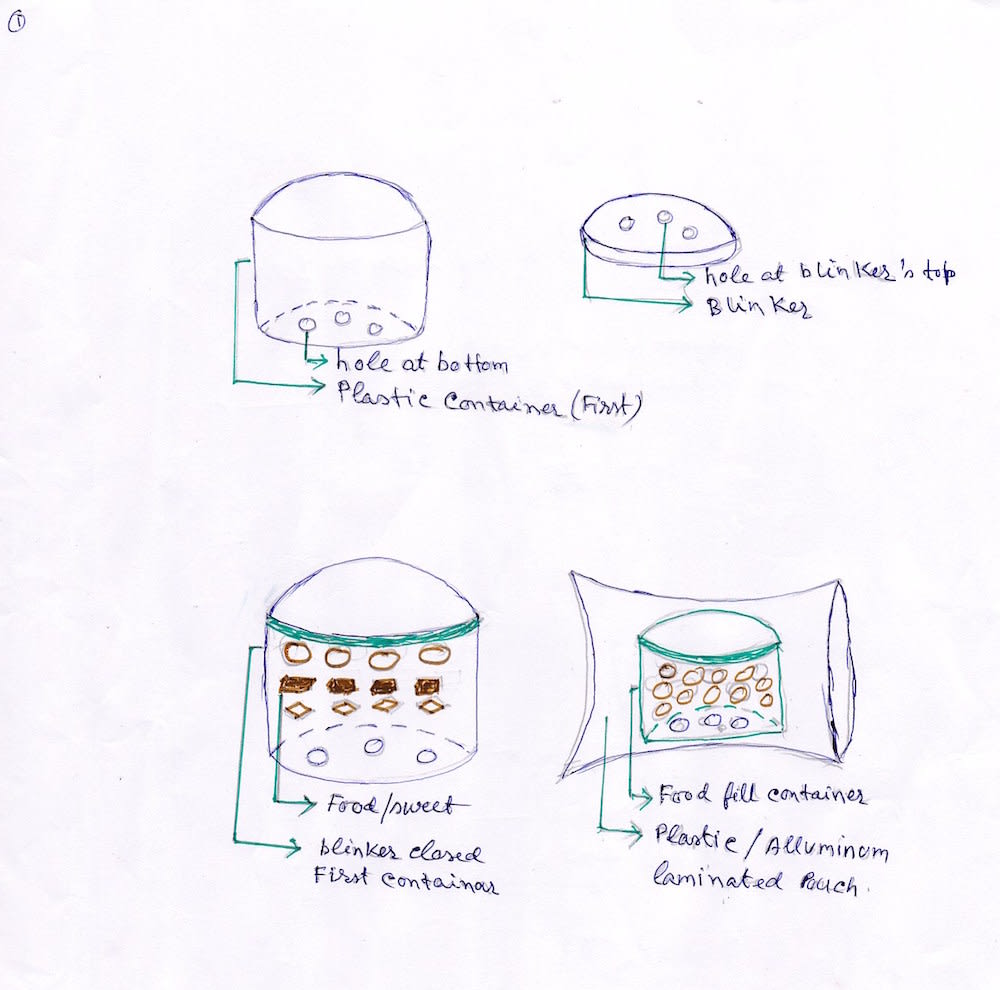 1
hole at bottom
Plastic Container (First)
hole at blinker's top
Blinker
Food/sweet
blinker closed
First Container
Food fill container
Plastic / Alluminom
laminated Pouch.